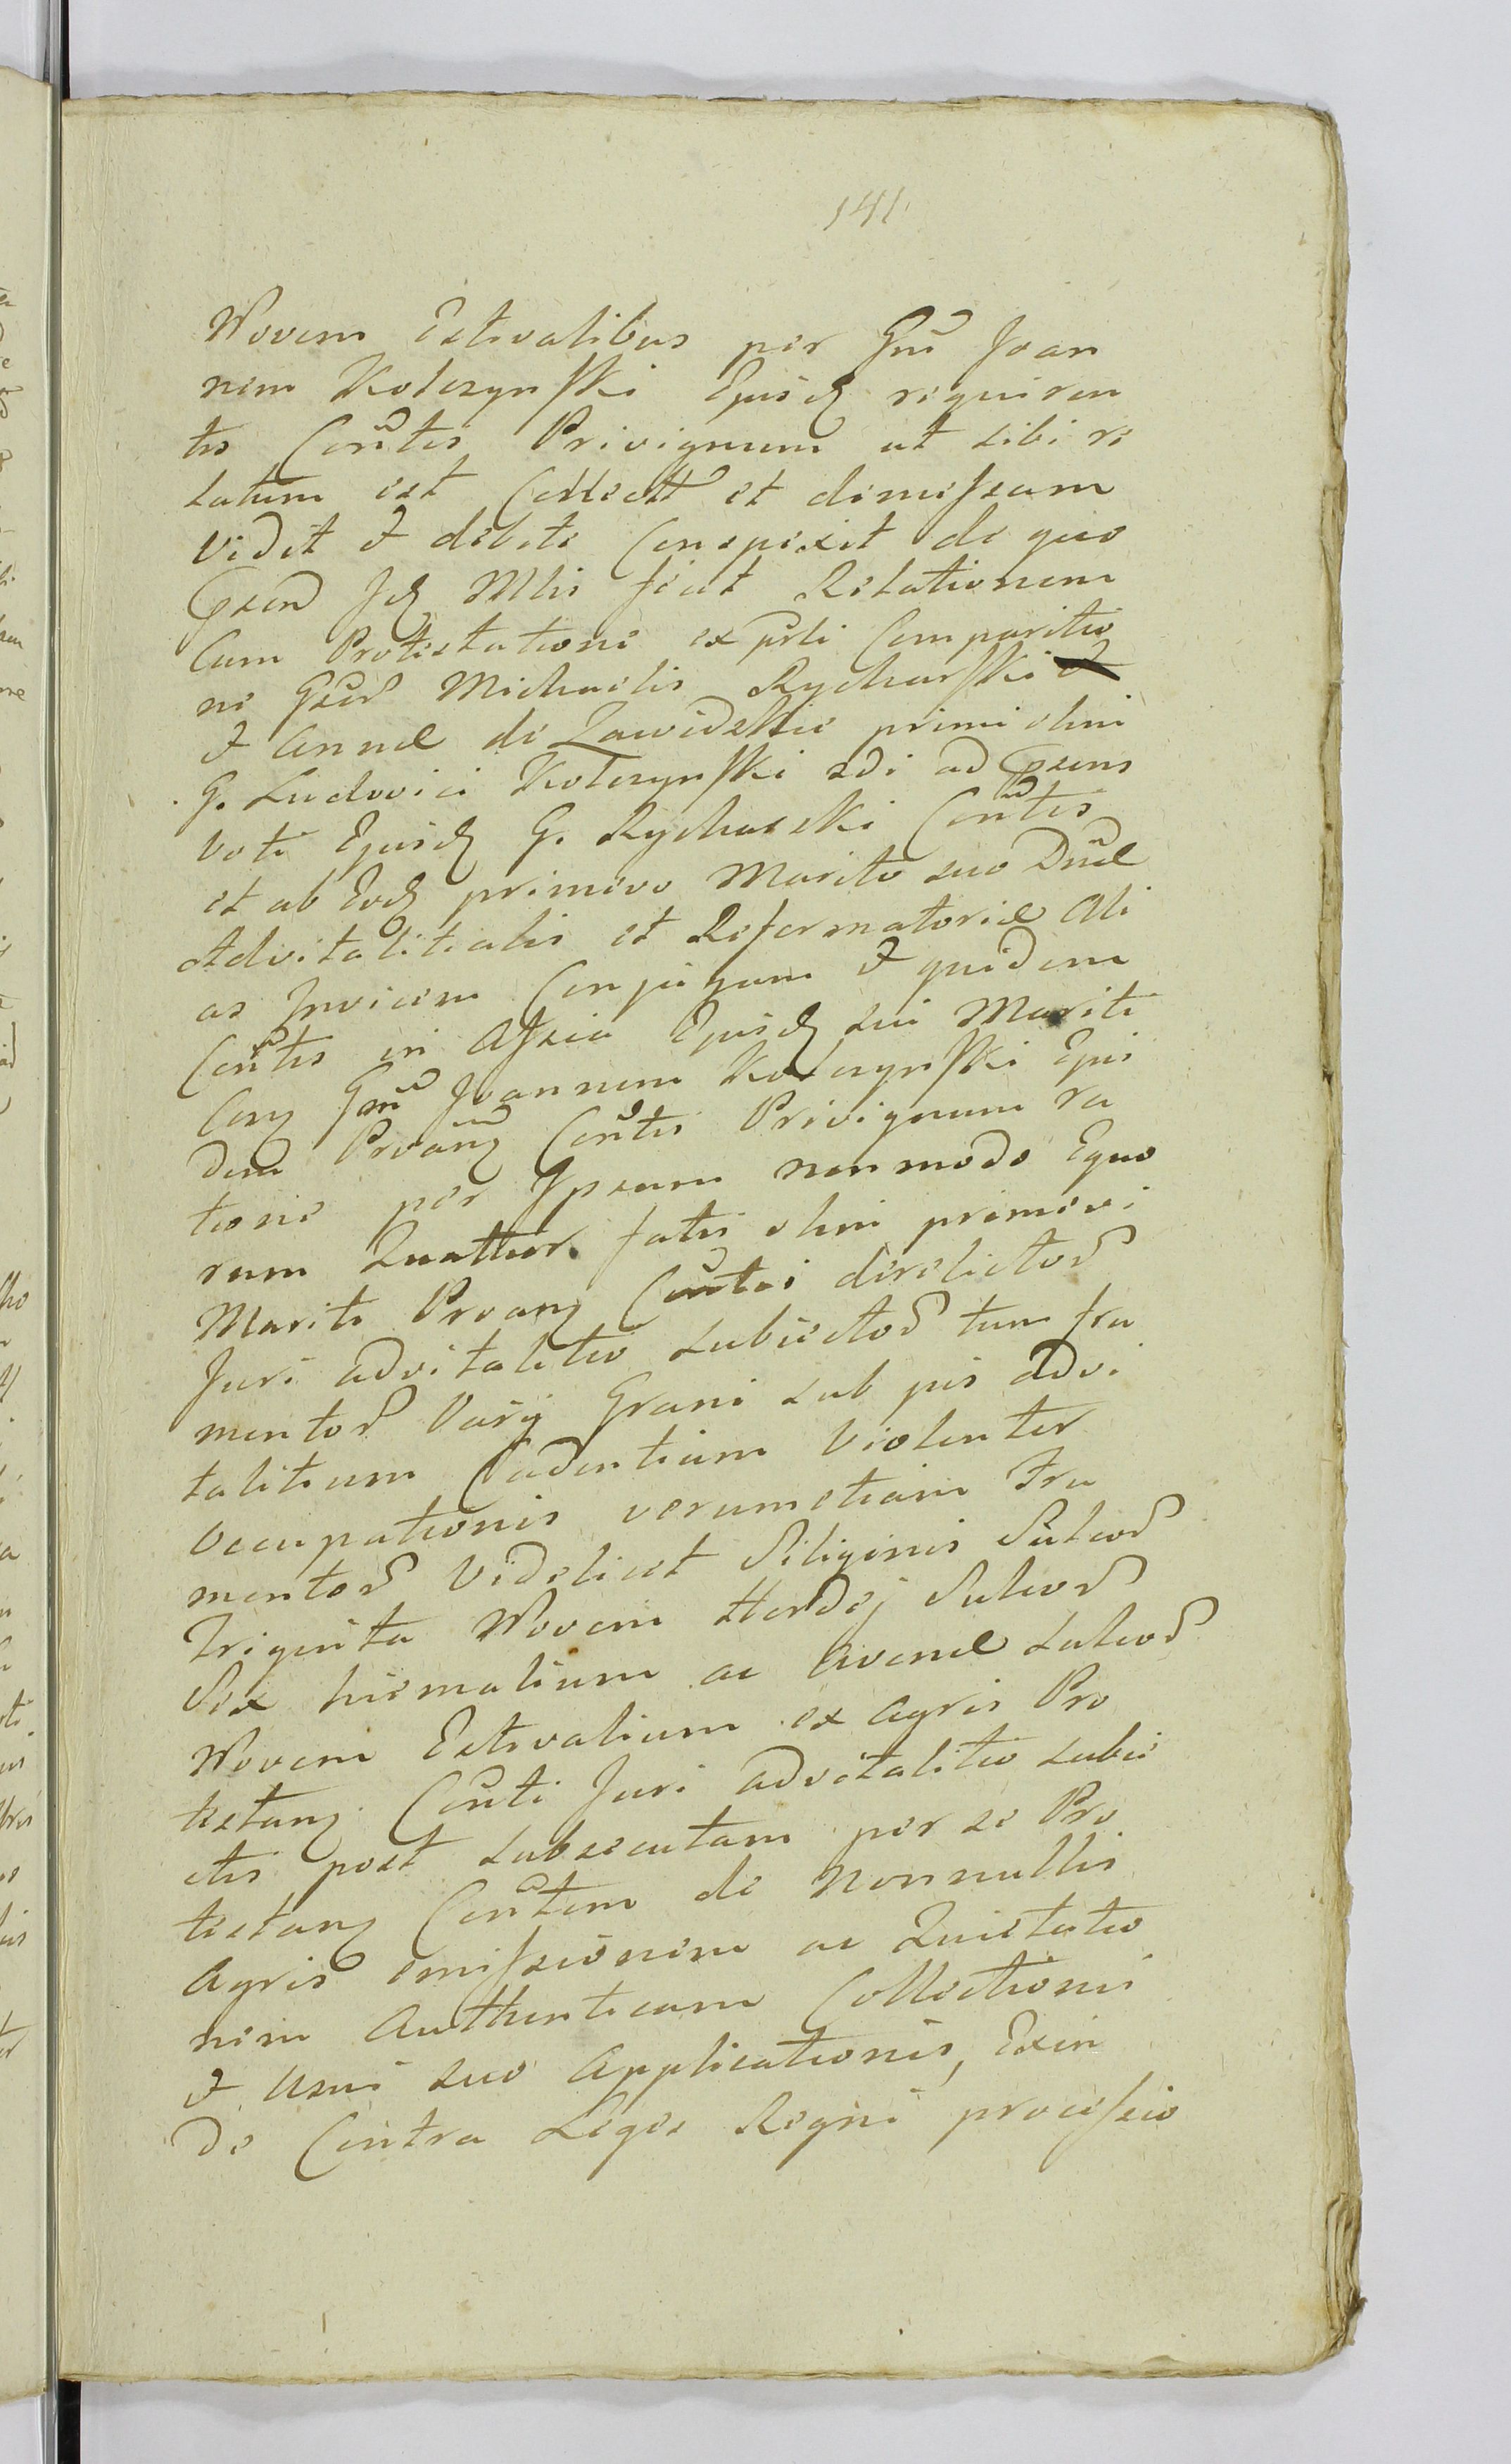 141
Novem Estivalibus per Gnu Joan
nem Kolczynski Ejusdq requiren
tis Contis Privignum ut sibi re
latum est Collect et dimissam
vidit et debite Conspexit de quo
Pntem Idq Mlis fecit Relationem
Cum Protestatione ex prli Comparitio
ne Gsor Michaelis Rycharski
et Annæ de Zawidzkie primi olim
G. Ludovici Kolczynski 2di ad Pnsens
Voti Ejusdq G. Rycharski Contis
et ab Eodq primevo Marito suo Dnæ
Advitalitialis et Reformatoriæ Ali
as Invicem Conjugum et quidem
Contis in Assia Ejusdq sui Mariti
Con Gnu Joannem Kolczynski Ejus
dem Proang Contis Privignum ra
tione per Ipsam nonmodo Equo
rum Quatuor fatis olim primevi
Mariti Proang Contis derelictor
Juri advitalitio subiector tum fru
mentor Varij Grani sub jus advi
talitium Cadentium Violenter
Occupationis verumetiam Fru
mentor Videlicet Siliginis Sulcor
Triginta Novem Hordej Sulcor
Sex hiemalium ac Avenæ Sulcor
Novem Estivalium ex Agris Pro
testang Conti Juri advitalitio subie
ctis post subsecutam per se Pro
testang Contem de Nonnullis
Agris emissionem ac Quietatio
nem Authenticam Collectionis
et Usui suo Applicationis, Exin
de Contra Leges Regni processio